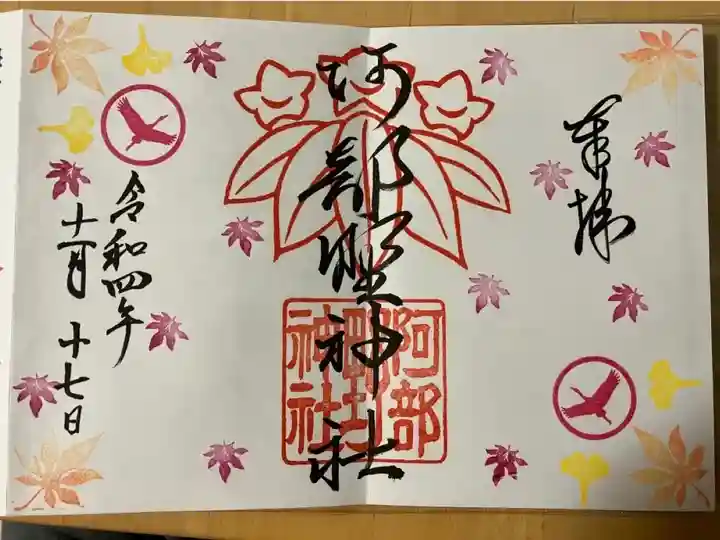 奉拝
阿部野神社
阿部野神社
令和四年
十一月十七日